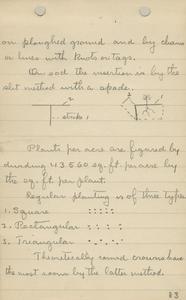 on ploughed ground and by chains
or lines with knots or tags.
On sod the insertion is by the
slit method with a spade.
2
1
stroke 1
Plants per acre are figured by
dividing 43.560 sq. ft. per acre by
the sq. ft. per plant.
Regular planting is of three types
1. Square
2. Rectangular
3. Triangular
Theoretically round crowns have
the most room by the latter method.
83